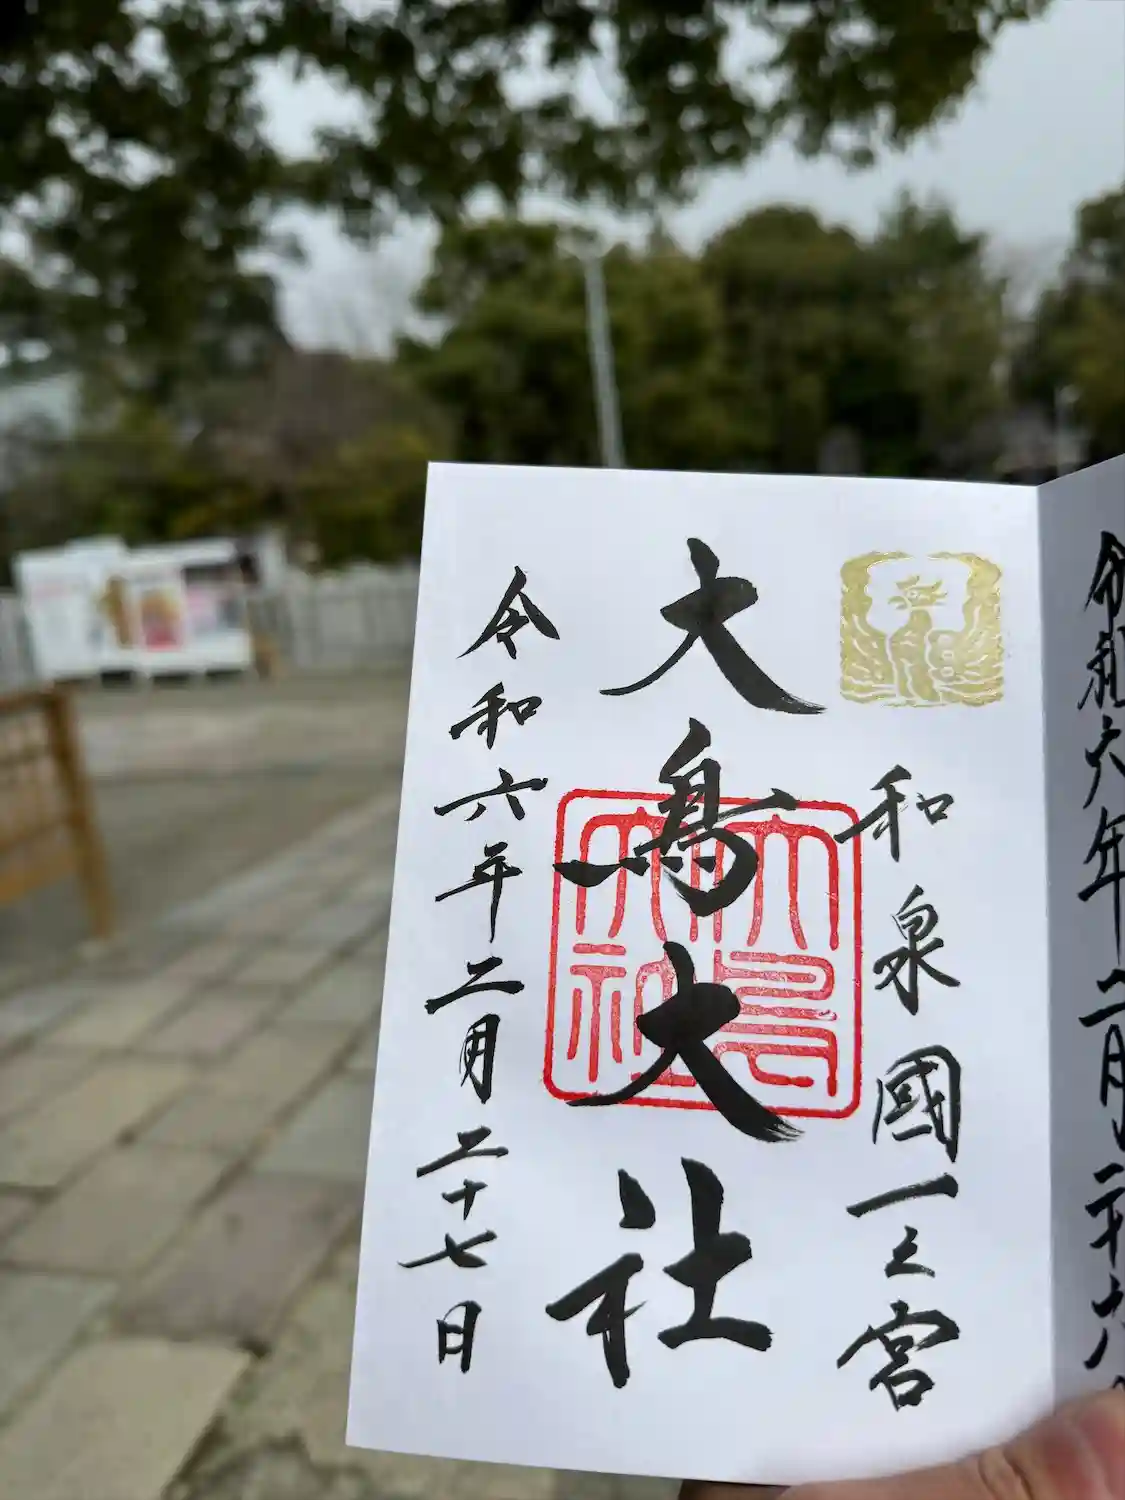 令和六年二月二十六
和泉國一之宮
大鳥大社
大鳥
大社
令和六年二月二十七日